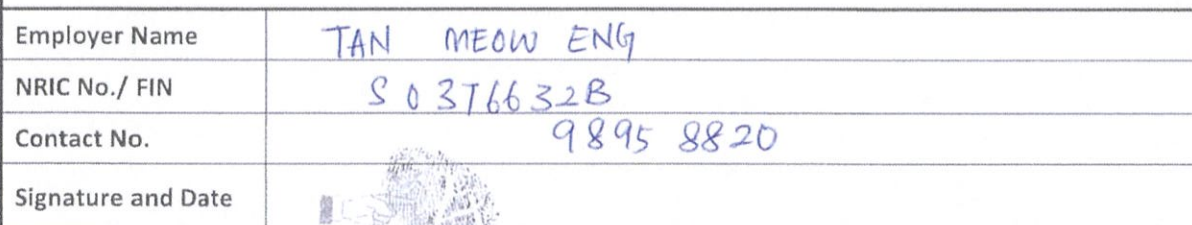 Employer Name TAN MEOW ENG
NRIC No./ FIN S0376632B
Contact No. 9895 8820
Signature and Date